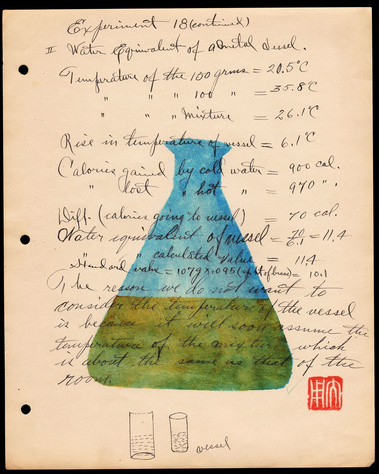 Experiment 18 (continued)
II Water Equivalent of a Metal Vessel.
Temperature of the 100 grms = 20.5°C
" " " 100 " = 35.8°C
" " " Mixture = 26.1°C
Rise in temperature of vessel = 6.1°C
Calories gained by cold water = 900 cal.
" lost " hot " = 970 " .
Diff. (calories going to vessel) = 70 cal.
Water equivalent of vessel = 70/6.1 = 11.4
" calculated value = 11.4
Standard value = 107g x .095 = 10.1
The reason we do not want to
consider the temperature of the vessel
is because it will soon assume the
temperature of the mixture which
is about the same as that of the
room.
vessel